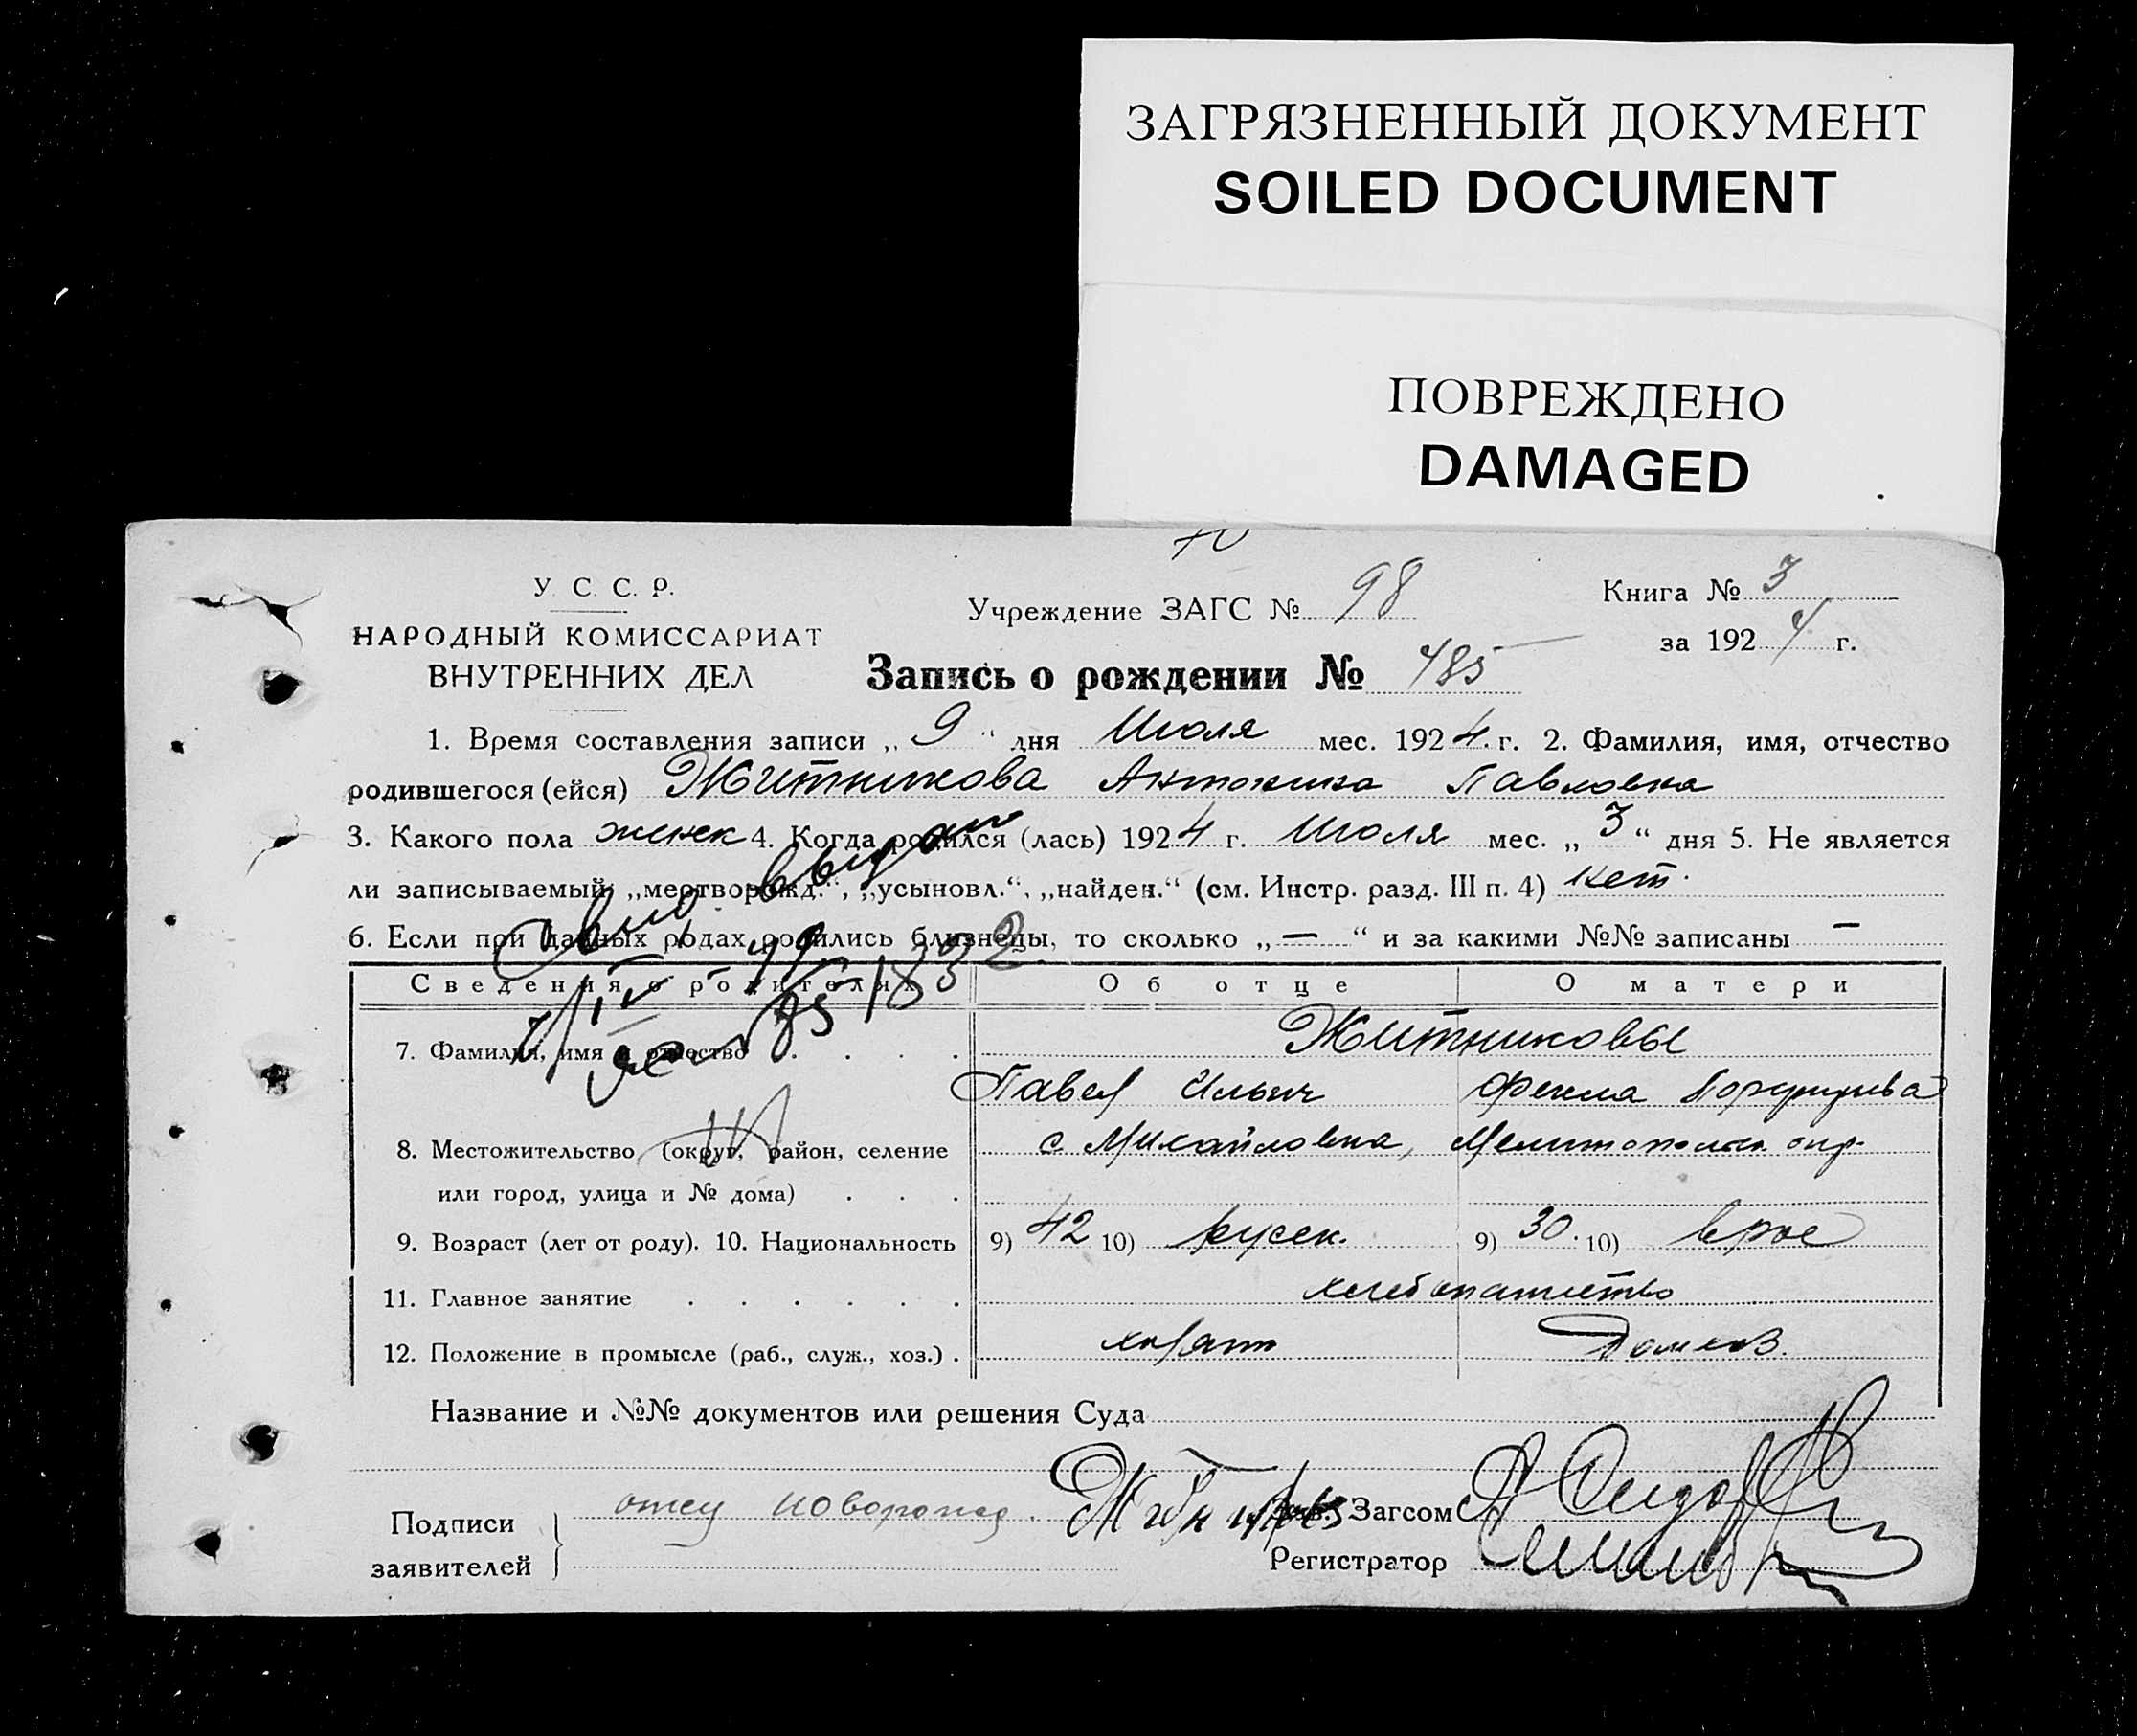 ЗАГРЯЗНЕННЫЙ ДОКУМЕНТ
SOILED DOCUMENT
ПОВРЕЖДЕНО
DAMAGED
У. С. С. Р.
НАРОДНЫЙ КОМИССАРИАТ
ВНУТРЕННИХ ДЕЛ
Учреждение ЗАГС № 98
Книга № 3
за 1924 г.
Запись о рождении № 485
1. Время составления записи „ 9 “ дня Июля мес. 1924. г. 2. Фамилия, имя, отчество
родившегося (ейся) Житникова Антонина Павловна
3. Какого пола женск 4. Когда родился (лась) 1924 г. Июля мес. „ 3 “ дня 5. Не является
ли записываемый „мертворожд.“, „усыновл.“, „найден.“ (см. Инстр. разд. III п. 4) нет.
6. Если при данных родах родились близнецы, то сколько „ — “ и за какими №№ записаны —
выдан
Сведения о родителях Об отце О матери
7. Фамилия, имя и отчество . . . . Житниковы
Павел Ильич Фекла
8. Местожительство (округ, район, селение с Михайловка, Мелитопольск. окр.
или город, улица и № дома) . . .
9. Возраст (лет от роду). 10. Национальность 9) 42 10) русск. 9) 30. 10)
11. Главное занятие . . . . . . хлебопашество
12. Положение в промысле (раб., служ., хоз.) . Домхоз.
Название и №№ документов или решения Суда
Подписи
заявителей
отец новорожд.
Зав. Загсом
Регистратор